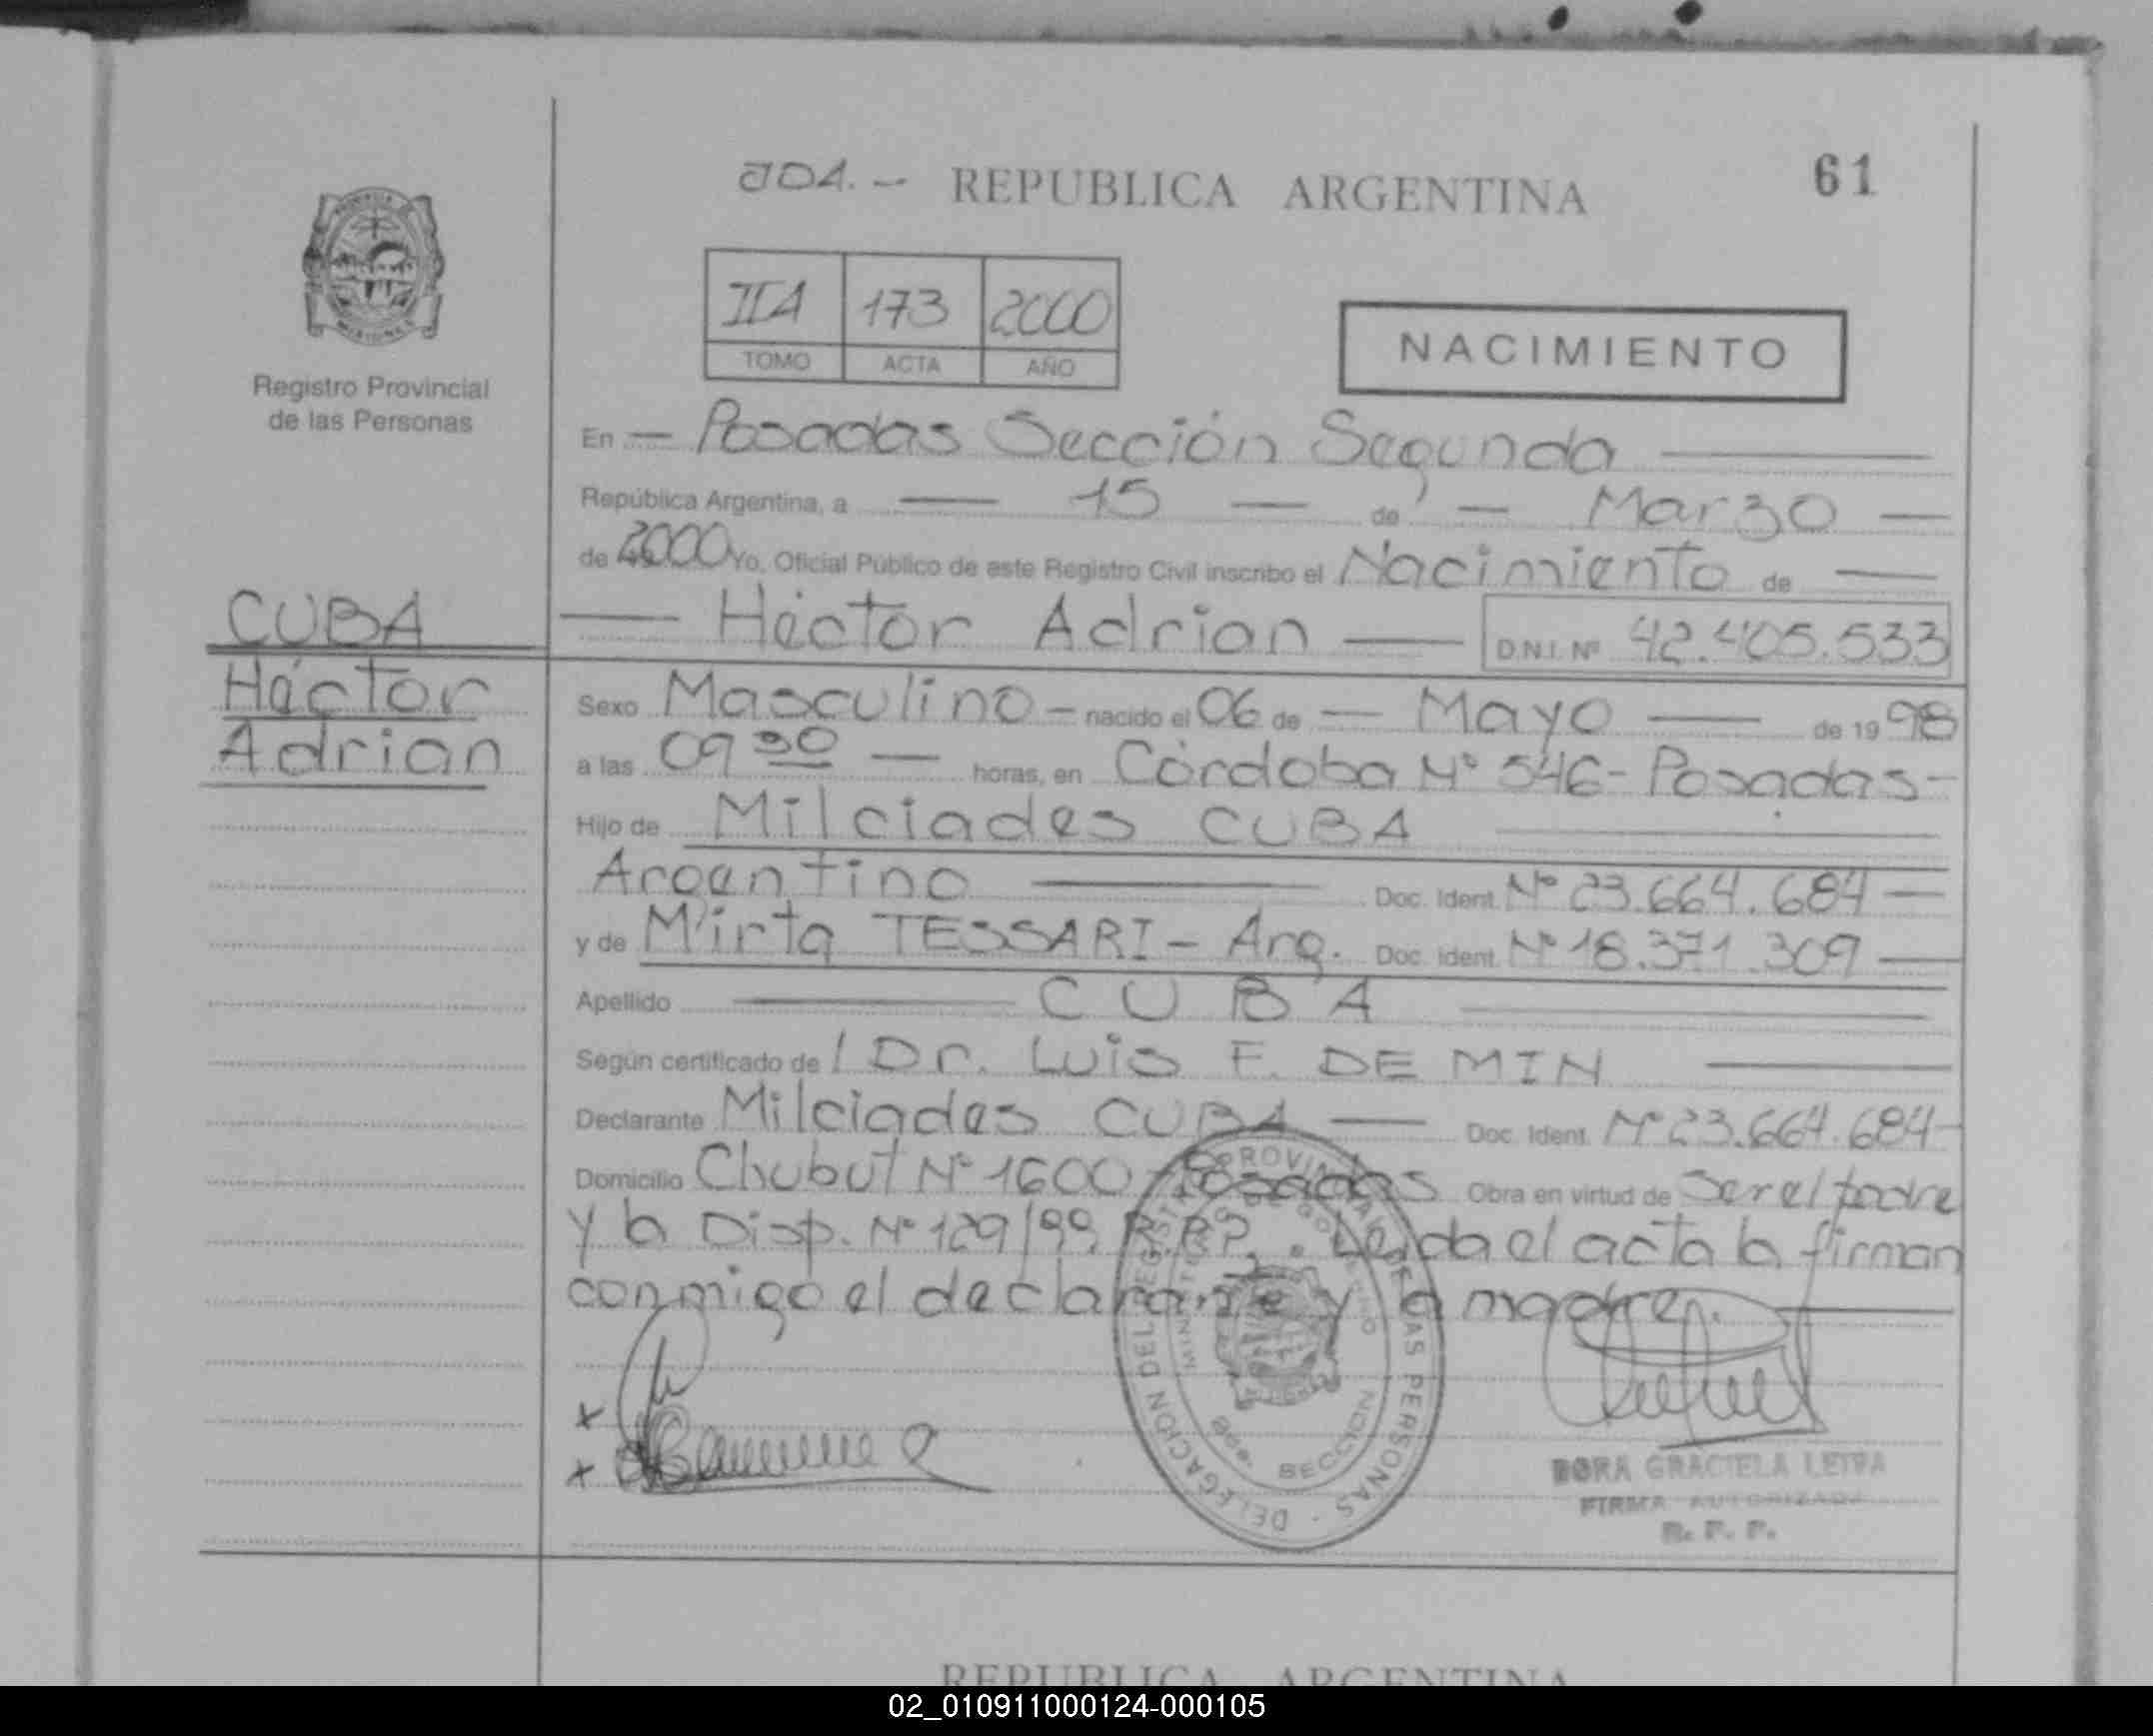 JDA. - REPUBLICA ARGENTINA 61
IIA 173 2000
TOMO ACTA AÑO
NACIMIENTO
Registro Provincial
de las Personas
En — Posadas Sección Segunda —
República Argentina, a — 15 — de — Marzo —
de 2000 Yo, Oficial Público de este Registro Civil inscribo el Nacimiento de —
CUBA
Héctor
Adrian
— Héctor Adrian — D.N.I. Nº 42.405.533
Sexo Masculino - nacido el 06 de — Mayo — de 19 98
a las 09 30 — horas, en Córdoba Nº 546 - Posadas -
Hijo de Milciades CUBA
Argentino — Doc. Ident. Nº 23.664.684 —
y de Mirta TESSARI - Arg. Doc. Ident. Nº 18.371.309 —
Apellido — CUBA —
Según certificado de / Dr. Luis F. DE MIN —
Declarante Milciades CUBA — Doc. Ident. Nº 23.664.684 -
Domicilio Chubut Nº 1600 - Posadas Obra en virtud de Ser el padre
y la Disp. Nº 129/99. R.P.P. . Leída el acta la firman
conmigo el declarante y la madre. —
DELEGACION DEL REGISTRO PROVINCIAL DE LAS PERSONAS
MINISTERIO DE GOBIERNO
SECCION
DORA GRACIELA LEIVA
FIRMA AUTORIZADA
R. P. P.
REPUBLICA ARGENTINA
02_010911000124-000105